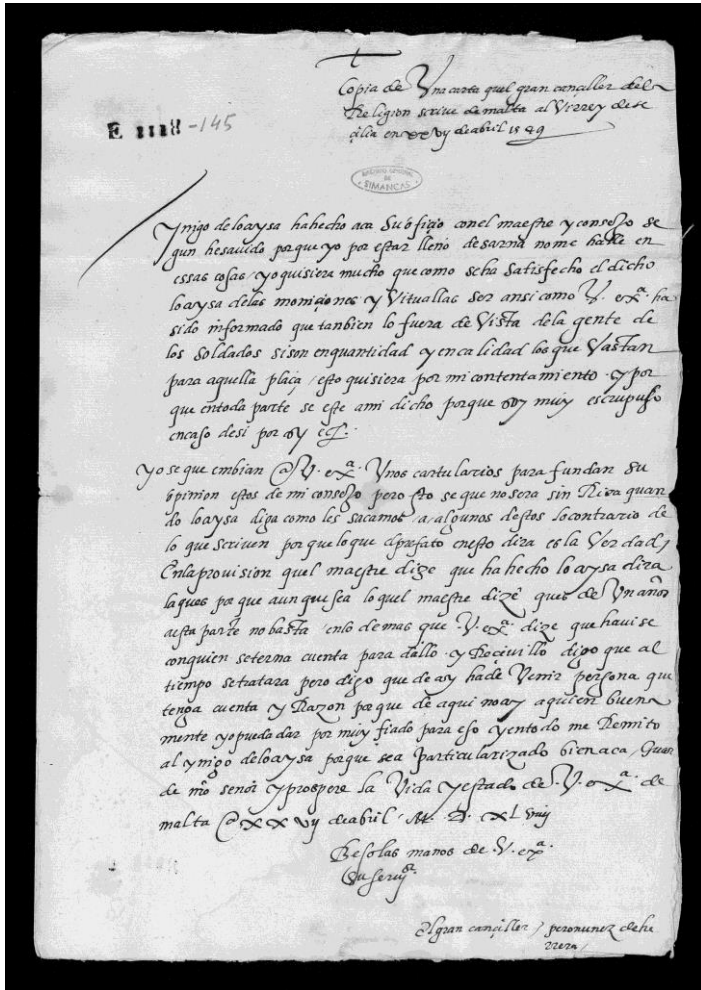 Copia de Una carta quel gran cançiller dela
Religion scrive de malta al Virrey de se
çilia en xxvij de abril 1549
E 1118-145
ARCHIVO GENERAL
DE
SIMANCAS
Ynigo de loaysa ha hecho aca su offiçio con el maestre y consejo se
gun he savido porque yo por estar lleno de sarna no me halle en
essas cosas / yo quisiera mucho que como se ha satisfecho el dicho
loaysa delas moniçiones y Vituallas ser ansi como V. exª. ha
sido informado que tanbien lo fuera de Vista de la gente de
los soldados si son en quantidad y en calidad los que Vastan
para aquella plaça / esto quisiera por mi contentamiento y por
que en toda parte se este a mi dicho porque soy muy escrupuloso
en caso de si por sy
yo se que embian a V. exª. Unos cartularios para fundar su
opinion estos de mi consejo pero se que no sera sin Risa quan
do loaysa diga como les sacamos / a / algunos destos lo contrario de
lo que scriven porque lo que el prefato en esto dira es la Verdad /
En la provision quel maestre dize que ha hecho loaysa dira
la que es por que aun que sea lo quel maestre dize ques de Un año
a esta parte no basta / en lo de mas que V. exª. dize que havise
con quien se terna cuenta para dallo y Reçivillo digo que al
tiempo se tratara pero digo que de ay ha de Venir persona que
tenga cuenta y Razon por que de aqui no ay a quien buena
mente yo pueda dar por muy fiado para eso y en todo me Remito
al ynigo de loaysa porque sea particularizado bien aca / Guar
de nro señor y prospere la Vida y estado de V. exª. de
malta a xxvij de abril M. D. xL viiij
Besolas manos de V. exª.
Su servyor
El gran cançiller / pero nunez de he
rrera /